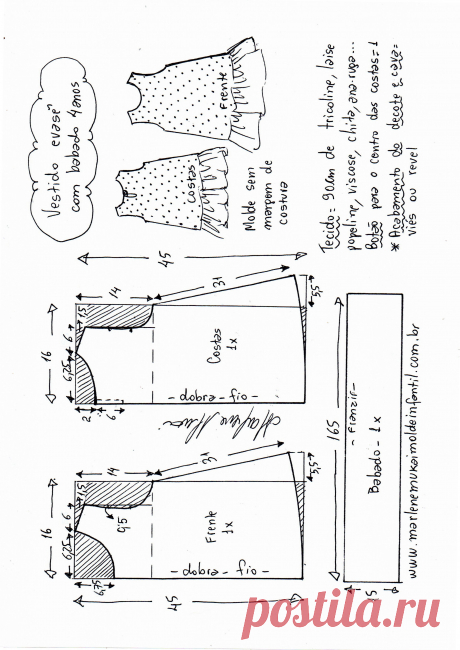 Vestido evasê
com babado 4 anos
Frente
Costas
Molde sem
margem de
costura
Tecido = 90cm de tricoline, laise
popeline, viscose, chita, ana-ruga...
Botão para o centro das costas = 1
* Acabamento do decote e cava =
viés ou revel
45
14
31
3,5
1,5
6
6,25
16
2
6
Costas
1x
- fio - dobra -
45
14
31
3,5
1,5
6
6,25
16
0,5
6,75
Frente
1x
- fio - dobra -
165
- Franzir -
Babado - 1x
15
www.marlenemukaimoldeinfantil.com.br
postila.ru